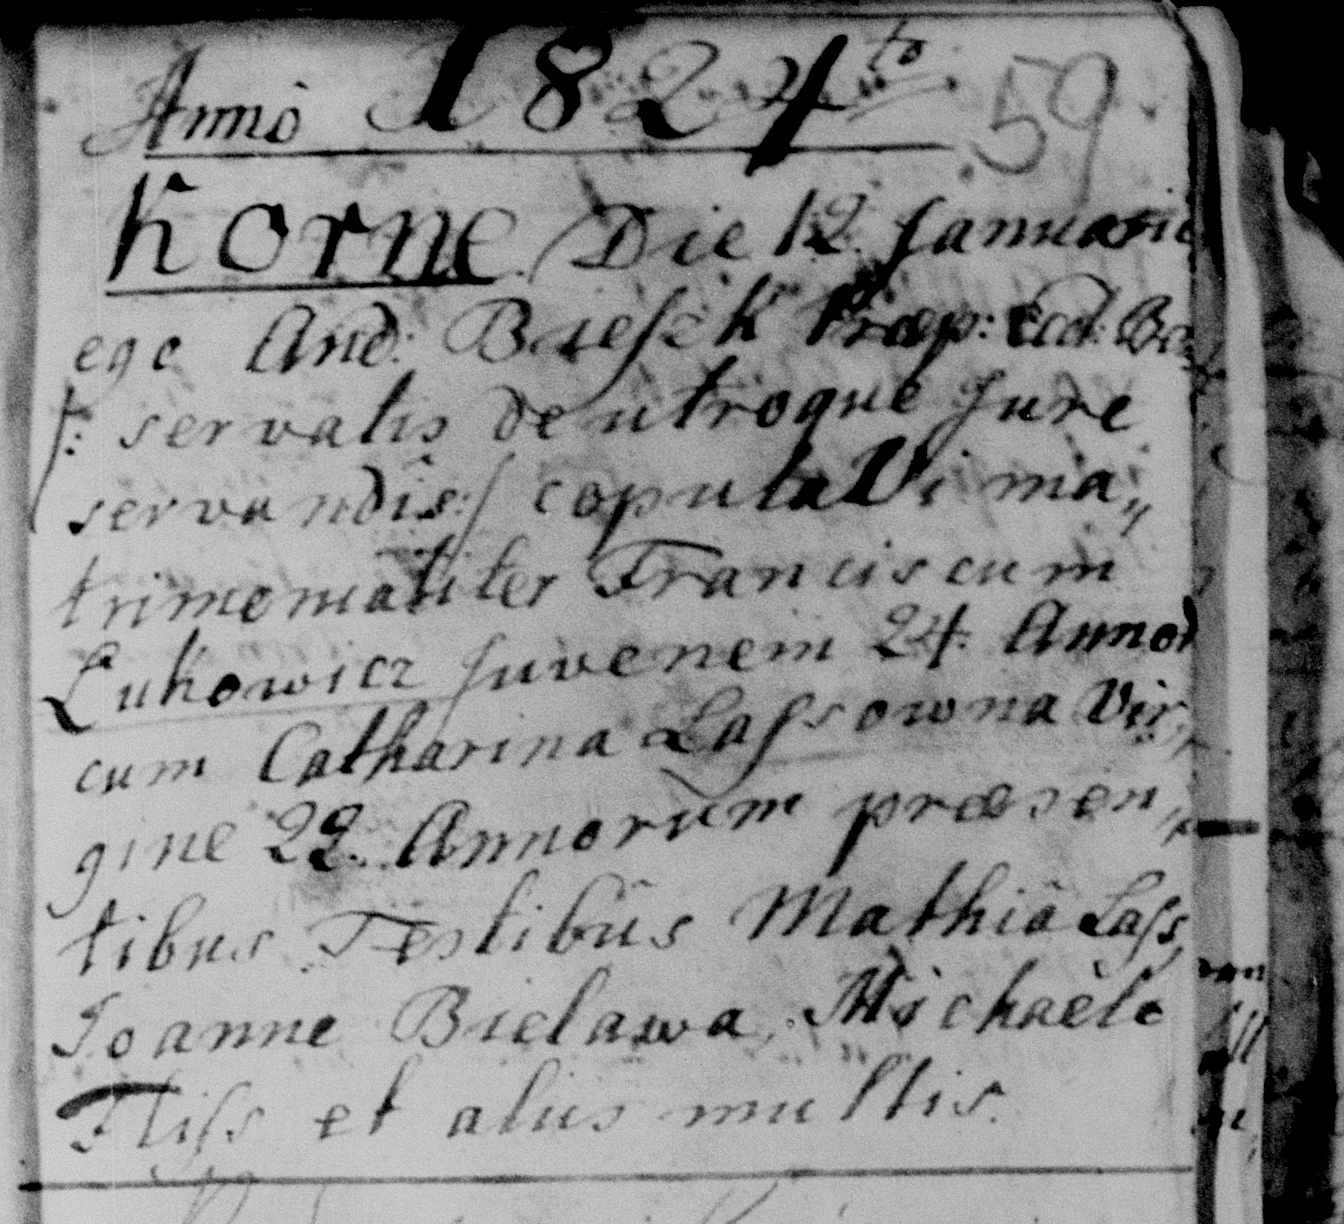 Anno 1824to 59
Korne Die 12 Januarii
ego And: Bresck Præp: Eccl: Bo
/: servatis de utroque Jure
servandis :/ copulaVi ma„
trimonialiter Franciscum
Lukowicz Juvenem 24. Annor
cum Catharina Lassowna Vir„
gine 22. Annorum præsen„
tibus Testibus Mathia Lass
Joanne Bielawa, Michaële
Fliss et aliis multis.